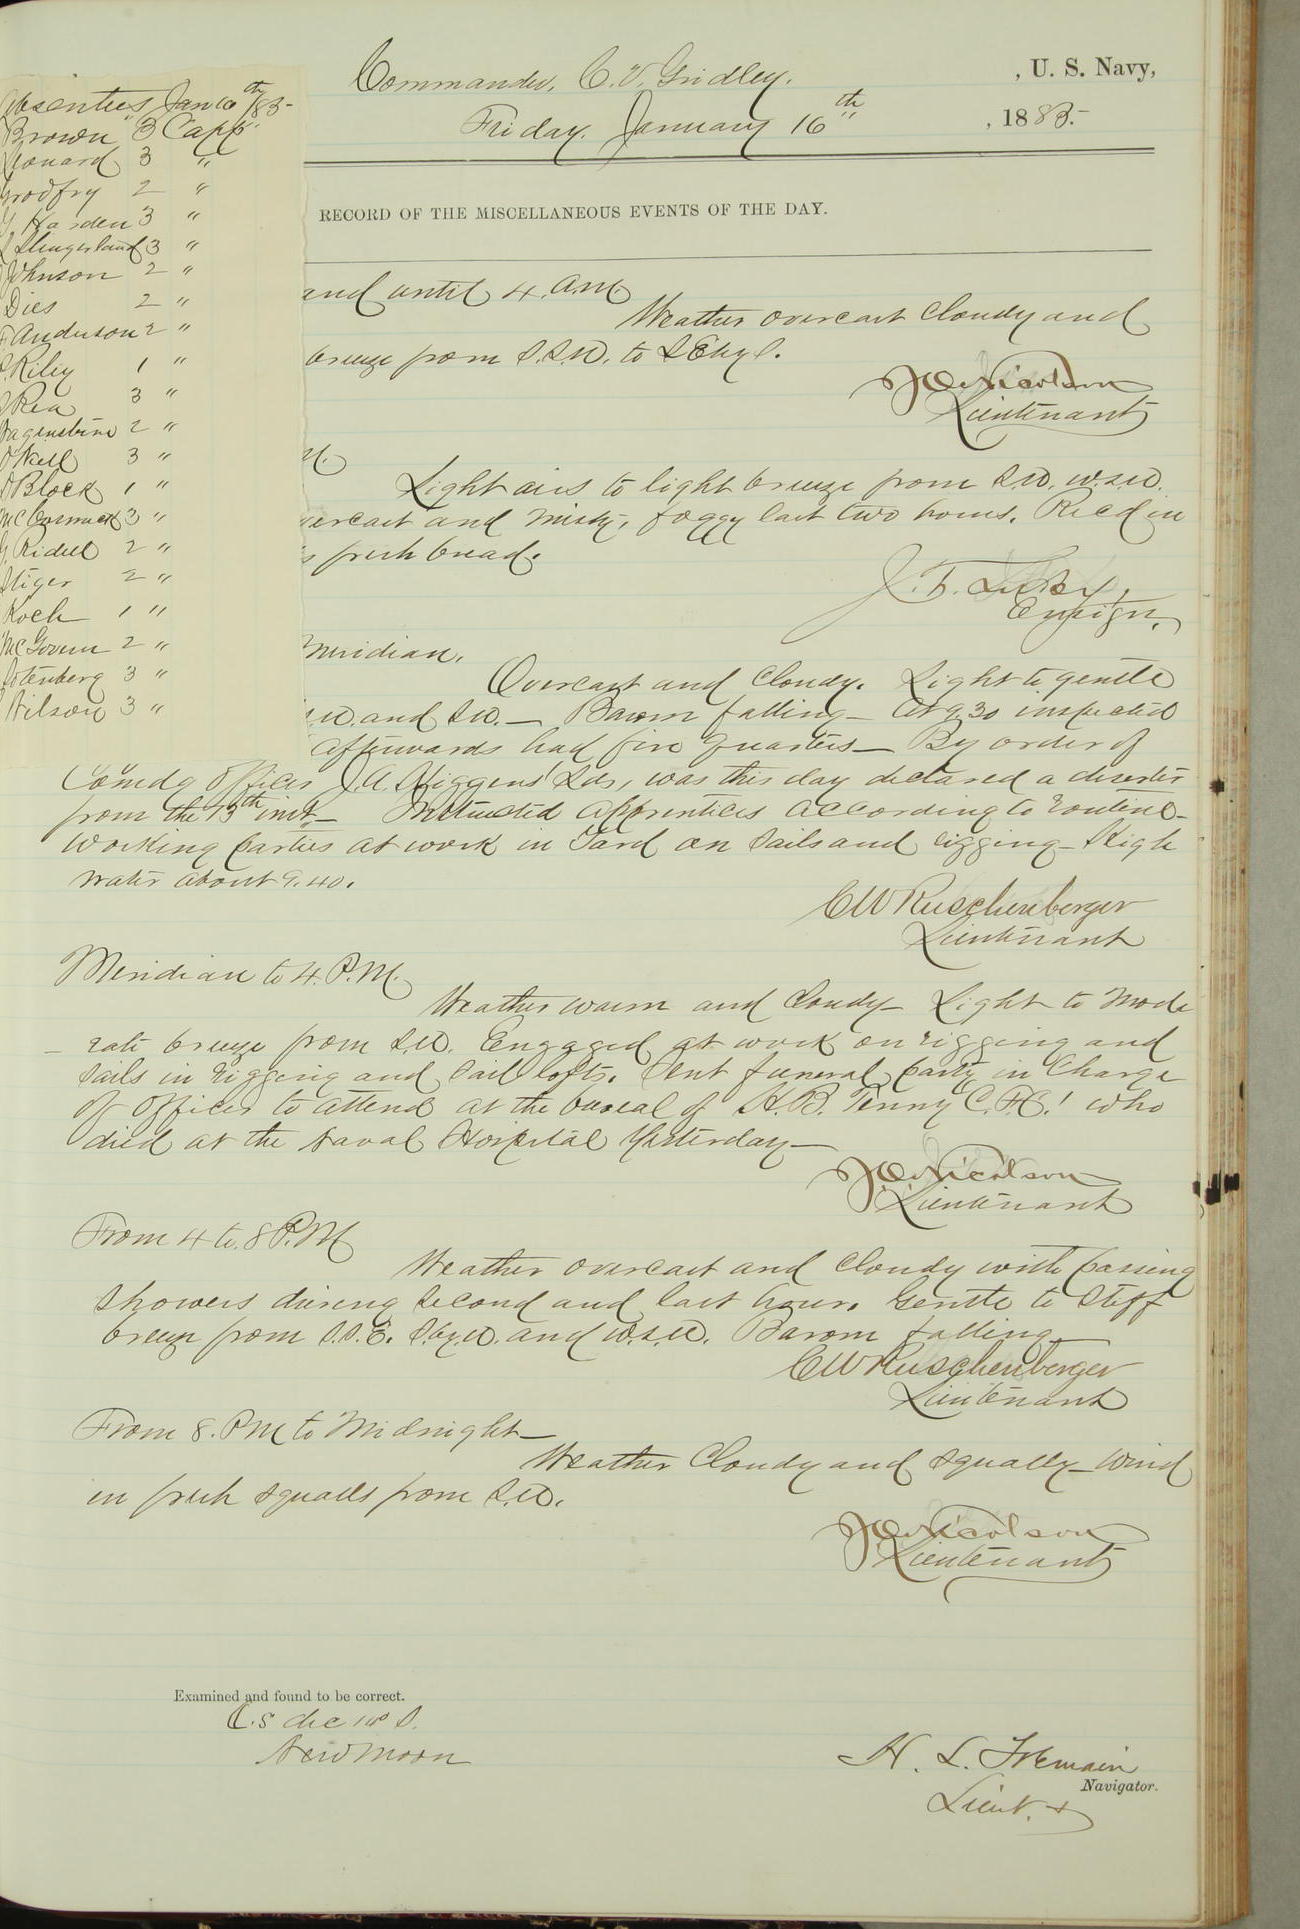 Absentees Jan 16th /85-
Brown 3 Capp.
Leonard 3 "
Godfry 2 "
G. Harden 3 "
Slingerland 3 "
Johnson 2 "
Dies 2 "
F Anderson 2 "
Riley 1 "
Rea 3 "
2 "
O'Neill 3 "
Block 1 "
McCormack 3 "
G Ridell 2 "
Stiger 2 "
Koch 1 "
McGovern 2 "
3 "
Wilson 3 "
Commander, C. V. Gridley. , U. S. Navy,
Friday. January 16th , 1885.-
RECORD OF THE MISCELLANEOUS EVENTS OF THE DAY.
and until 4. A.M.
Weather overcast cloudy and
breeze from S.S.W. to S.E by S.
J O Nicolson
Lieutenant
M.
Light airs to light breeze from S.W. W.S.W.
ercast and misty, foggy last two hours. Recd in
s fresh bread.
J. T.
Ensign.
meridian.
Overcast and cloudy. Light to gentle
S.W. and SW.— Barom falling— At 9.30 inspected
afterwards had fire quarters— By order of
Comdg Officer J. A. Higgens' Lds, was this day declared a deserter
from the 15th inst.— Instructed apprentices according to routine—
Working parties at work in Yard on sails and rigging— High
water about 9.40.
C W Ruschenberger
Lieutenant
Meridian to 4. P.M.
Weather warm and cloudy— Light to mode
— rate breeze from S.W. Engaged at work on rigging and
sails in rigging and sail lofts. Sent funeral party in charge
of officer to attend at the bureal of H. B. Penny who
died at the Naval Hospital Yesterday—
J O Nicolson
Lieutenant
From 4 to. 8 P.M
Weather overcast and cloudy with passing
showers during second and last hour. Gentle to stiff
breeze from S.S.E. S.by.W. and W.S.W. Barom falling—
C W Ruschenberger
Lieutenant
From 8. P.M to Midnight—
Weather Cloudy and squally— Wind
in fresh squalls from S.W.
J O Nicolson
Lieutenant
Examined and found to be correct.
New Moon
H. L. Tremain
Navigator.
Lieut.